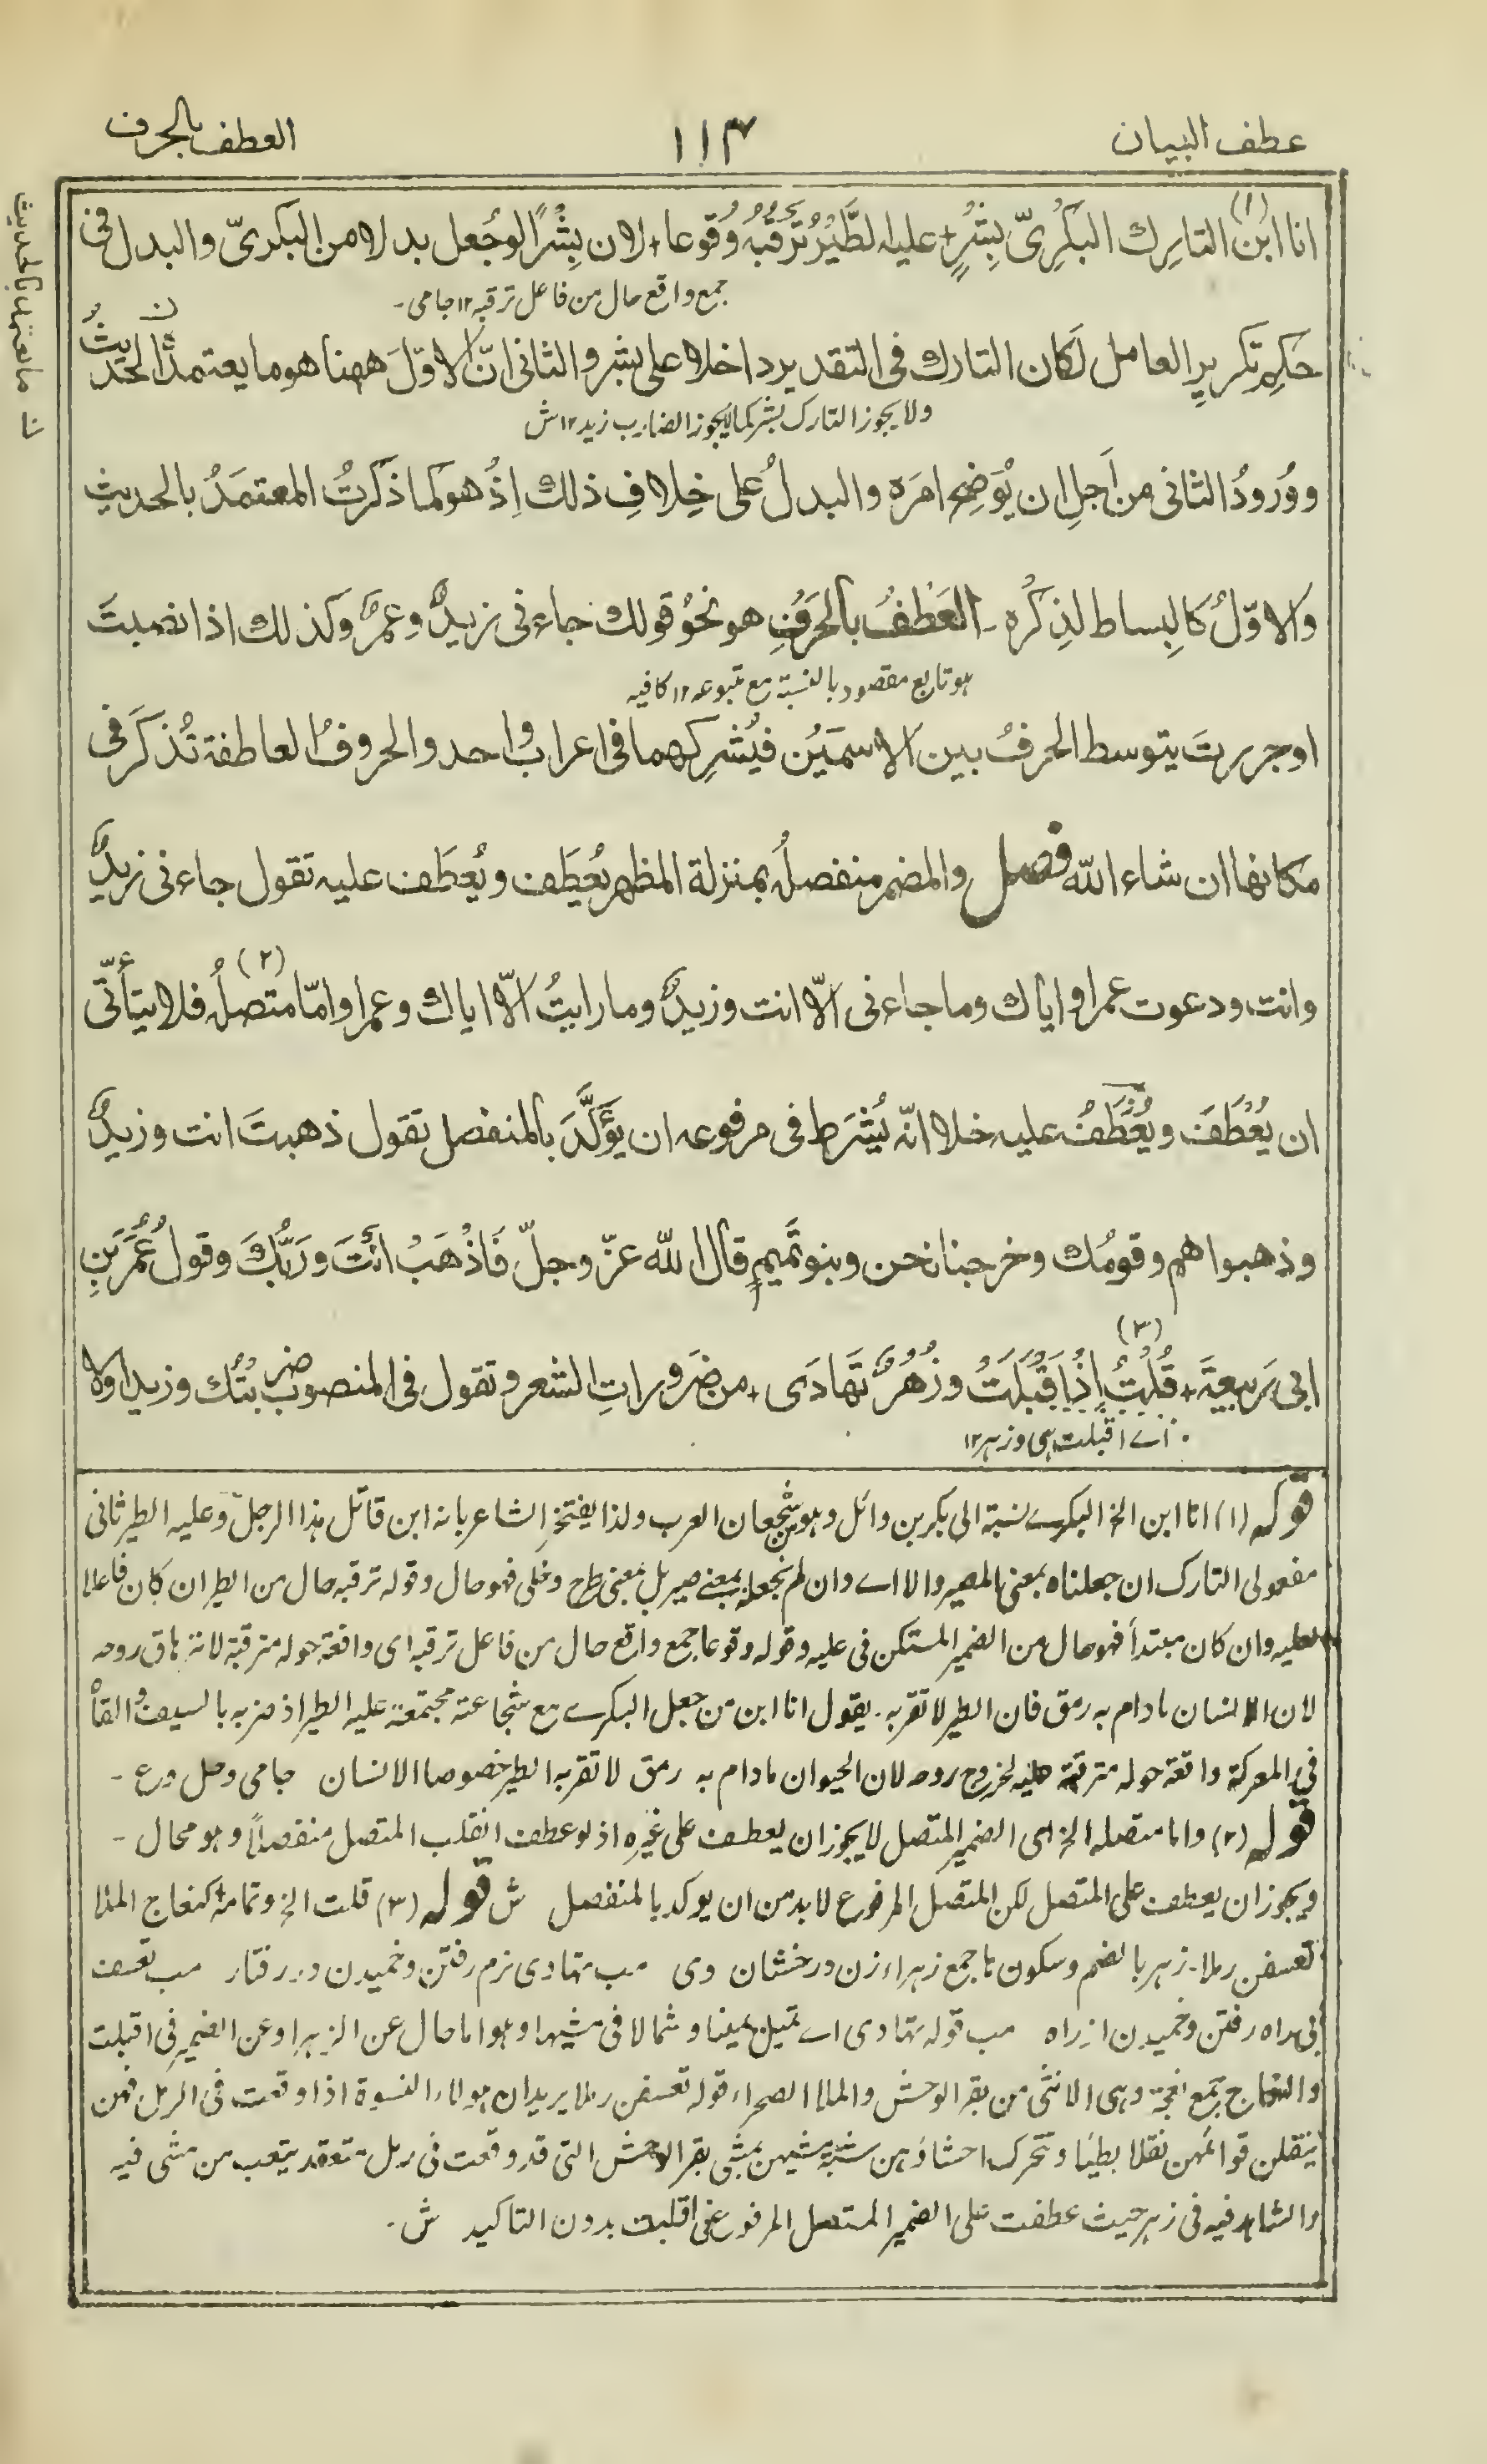 عطف البيان ١١٣ العطف بالحرف
(١)
انا ابن التارِك البَكْرِيّ بِشْرٍ + عليه الطَّيْرُ تَرْقُبُه وُقوعا + لان بِشْرًا لوجُعل بدلا من البكريّ والبدل فى
جمع واقع حال من فاعل ترقبه ١٢ جامى -
حكمِ تكريرِ العامل لَكان التارك فى التقدير داخلا على بشر والثانى انّ الاوّلَ ههنا هو ما يعتمدُ الحديثُ
ولا يجوز التارك بشر كما لا يجوز الضارب زيد ١٢ ش
ن ما يعتمد بالحديث
ووُرودُ الثانى من اَجلِ ان يُوَضِحَ امرَه والبدلُ على خِلافِ ذلك اِذْ هو كما ذَكَرتُ المعتمَدُ بالحديثِ
والاوّلُ كالبِساط لذِكْرِه - العَطْفُ بالحَرْفِ هو نحوُ قولك جاءنى زيدٌ وعمرٌو وكذلك اذا نصبتَ
هو تابع مقصود بالنسبة مع متبوعه ١٢ كافيه
او جررتَ يتوسط الحرفُ بين الاسمَيْن فيُشْرِكهما فى اعراب واحد والحروفُ العاطفة تُذكَر فى
مكانها ان شاء الله فصل والمضمر منفصلُه بمنزلة المظهر يُعطَف ويُعطَف عليه تقول جاءنى زيدٌ
(٢)
وانت ودعوت عمرا واياك وما جاءنى الّا انت وزيدٌ وما رايتُ الّا اياك وعمرا وامّا متصلُه فلا يتأتّى
ان يُعْطَفَ ويُعْطَفُ عليه خلا انّه يُشْرَط فى مرفوعه ان يؤكَّدَ بالمنفصل تقول ذهبتَ انت وزيدٌ
وذهبوا هم وقومُك وخرجنا نحن وبنو تَميمٍ قال الله عزّ وجلّ فَاذْهَبْ اَنْتَ ورَبُّكَ وقولُ عُمَرَ بنِ
(٣)
ابى رَبيعةَ + قُلْتُ اِذْ اَقْبَلَتْ وزُهْرٌ تَهادَى + من ضَروراتِ الشعر وتقول فى المنصوب ضربتُك وزيدا ولا
اے اقبلت هى وزهر ١٢
قوله (١) انا ابن الخ البكرے نسبة الى بكر بن وائل وهو شجعان العرب ولذا يفتخر الشاعر بانه ابن قاتل هذا الرجل وعليه الطير ثانى
مفعولى التارك ان جعلناه بمعنى المصير والا اے وان لم نجعله بمعنے صير بل بمعنى طرح وخلى فهو حال وقوله ترقبه حال من الطير ان كان فاعلا
لعليه وان كان مبتدأ فهو حال من الضمير المستكن فى عليه وقوله وقوعا جمع واقع حال من فاعل ترقبه اى واقعة حوله مترقبة لانزهاق روحه
لان الانسان مادام به رمق فان الطير لا تقربه . يقول انا ابن من جعل البكرے مع شجاعته مجتمعة عليه الطير اذ ضربه بالسيف والقاه
فى المعركة واقعة حوله مترقبة عليه لخروج روحه لان الحيوان مادام به رمق لا تقربه الطير خصوصا الانسان جامى وحل ورع -
قوله (٢) واما متصله الخ اى الضمير المتصل لا يجوز ان يعطف على غيره اذ لو عطف انقلب المتصل منفصلاً وهو محال -
ويجوز ان يعطف على المتصل لكن المتصل المرفوع لا بد من ان يوكد بالمنفصل ش قوله (٣) قلت الخ وتمامه كنعاج الملا
تعسفن رملا . زهر بالضم وسكون ها جمع زهراء زن درخشان وى مب تهادى نرم رفتن وخميدن در رفتار مب تعسف
بى راه رفتن وخميدن از راه مب قوله تهادى اے تميل يمينا وشمالا فى مشيها وهو اما حال عن الزهر او عن الضمير فى اقبلت
والنعاج جمع نعجة وهى الانثى من بقر الوحش والملا الصحراء قوله تعسفن رملا يريد ان هولاء النسوة اذا وقعت فى الرمل فهن
ينقلن قوائمهن نقلا بطيئا وتتحرك احشاؤهن شبه مشيهن بمشى بقر الوحش التى قد وقعت فى رمل متعقد يتعب من مشى فيه
والشاهد فيه فى زهر حيث عطفت على الضمير المتصل المرفوع فى اقبلت بدون التاكيد ش -